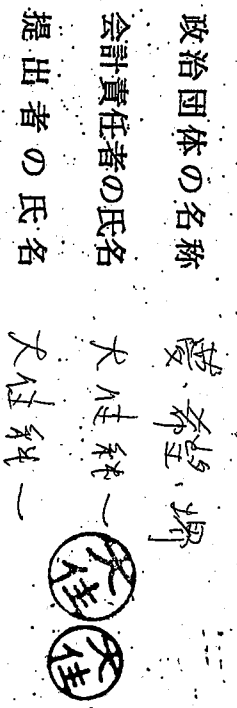 政治団体の名称 愛・希望・堺
会計責任者の氏名 大住純一
提出者の氏名 大住純一
大住 大住